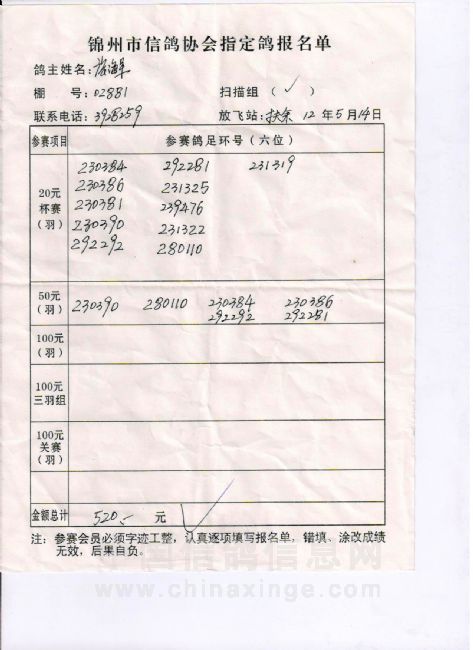 锦州市信鸽协会指定鸽报名单
鸽主姓名：
棚 号：02881 扫描组（✓）
联系电话：3928259 放飞站：扶余 12年5月14日
参赛项目 参赛鸽足环号（六位）
20元杯赛（羽）
230384 292281 231319
230386 231325
230381 239476
230390 231322
292292 280110
50元（羽）
230390 280110 230384 230386
292292 292281
100元（羽）
100元三羽组
100元关赛（羽）
金额总计 520.- 元
注：参赛会员必须字迹工整，认真逐项填写报名单，错填、涂改成绩
无效，后果自负。
中国信鸽信息网
www.chinaxinge.com